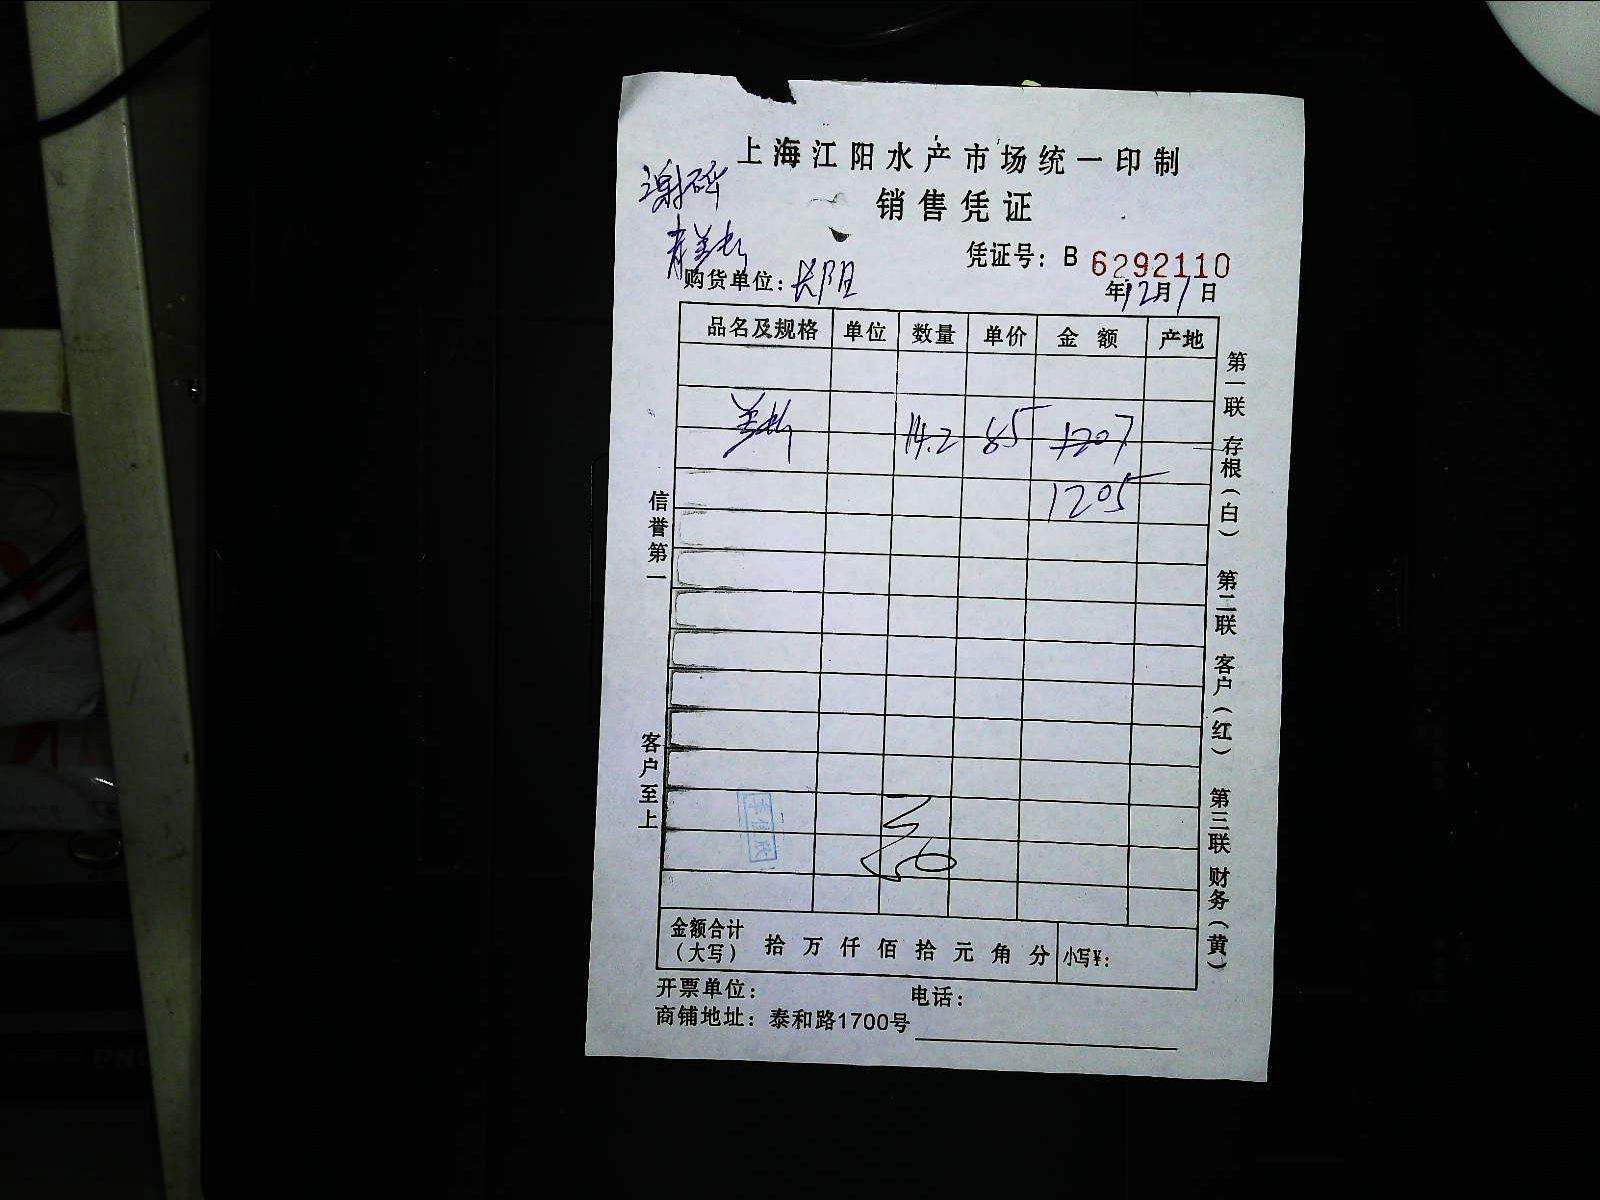 上海江阳水产市场统一印制
销售凭证
凭证号：B 6292110
购货单位：长阳
年12月1日
品名及规格 单位 数量 单价 金额 产地
14.2 85 1207
1205
信誉第一
客户至上
第一联 存根（白） 第二联 客户（红） 第三联 财务（黄）
金额合计（大写） 拾万仟佰拾元角分 小写¥：
开票单位： 电话：
商铺地址：泰和路1700号